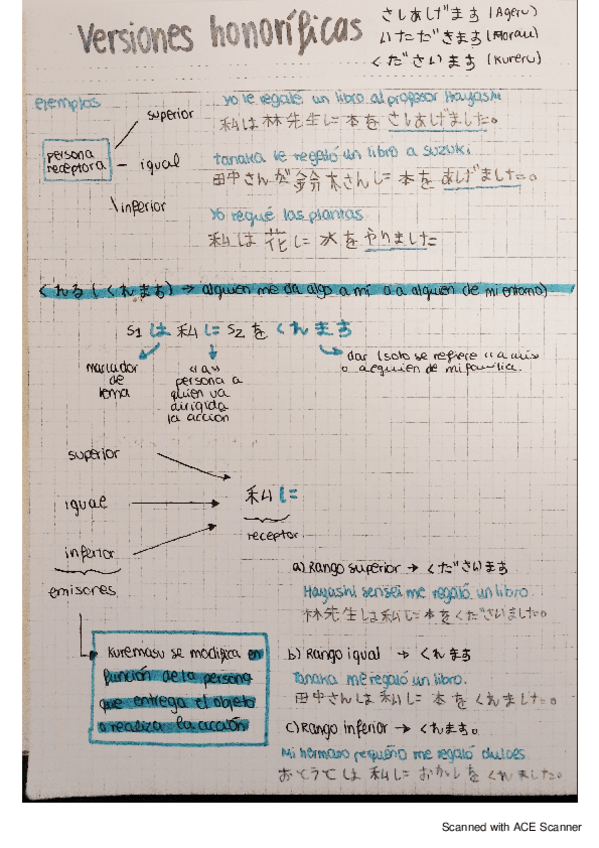 Versiones honoríficas
さしあげます (Ageru)
いただきます (Morau)
くださいます (Kureru)
ejemplos
persona receptora
superior
igual
inferior
yo le regalé un libro al profesor Hayashi
私は林先生に本をさしあげました。
tanaka le regaló un libro a suzuki
田中さんが鈴木さんに本をあげました。
yo regué las plantas
私は花に水をやりました
くれる (くれます) → alguien me da algo a mí o a alguien de mi entorno)
S1 は 私に S2 を くれます
marcador de tema
"a" persona a quien va dirigida la acción
dar (solo se refiere "a mí" o alguien de mi familia.
superior
igual
inferior
emisores
私に
receptor
Kuremasu se modifica en
función de la persona
que entrega el objeto
o realiza la acción
a) Rango superior → くださいます
Hayashi sensei me regaló un libro.
林先生は私に本をくださいました。
b) Rango igual → くれます
Tanaka me regaló un libro.
田中さんは私に本をくれました。
c) Rango inferior → くれます。
Mi hermano pequeño me regaló dulces
おとうとは私におかしをくれました。
Scanned with ACE Scanner